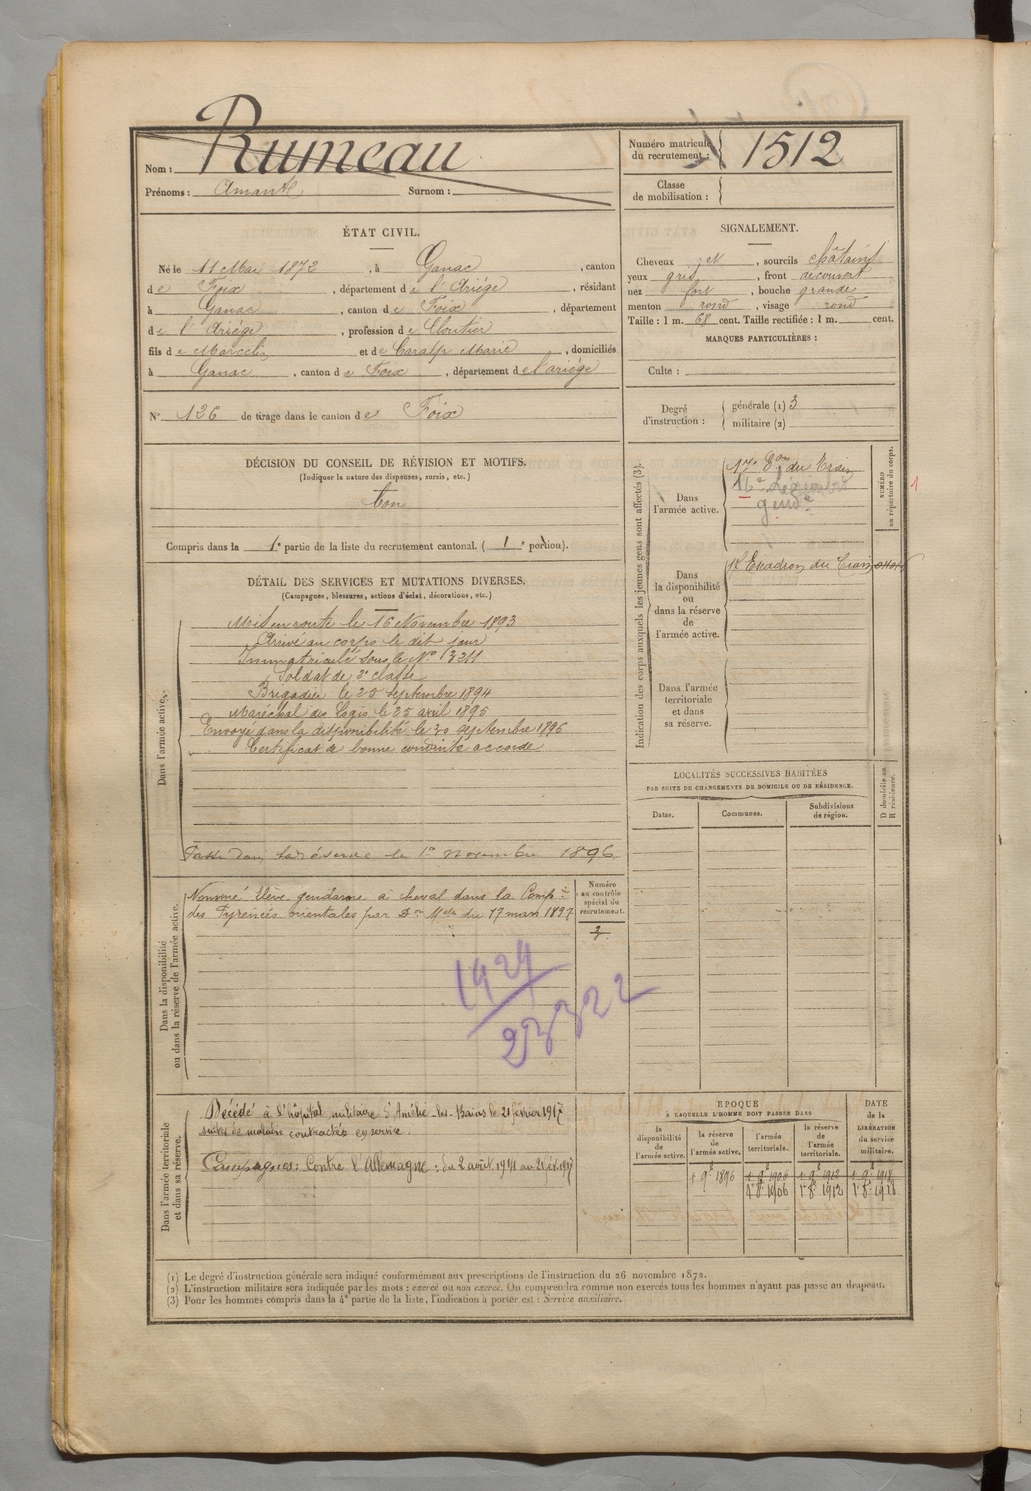 Nom : Rumeau
Prénoms : Amant Surnom :
Numéro matricule du recrutement : 1512
Classe de mobilisation :
ÉTAT CIVIL.
Né le 11 Mai 1872, à Ganac, canton
de Foix, département de l'Ariège, résidant
à Ganac, canton de Foix, département
de l'Ariège, profession de Cloutier
fils de Marcelin et de Caralp Marie, domiciliés
à Ganac, canton de Foix, département de l'ariège
N° 126 de tirage dans le canton de Foix
SIGNALEMENT.
Cheveux et, sourcils châtains
yeux gris, front découvert
nez fort, bouche grande
menton rond, visage rond
Taille : 1 m. 68 cent. Taille rectifiée : 1 m. cent.
MARQUES PARTICULIÈRES :
Culte :
Degré d'instruction : générale (1) 3
militaire (2)
DÉCISION DU CONSEIL DE RÉVISION ET MOTIFS.
(Indiquer la nature des dispenses, sursis, etc.)
bon
Compris dans la 1e partie de la liste du recrutement cantonal. ( 1e portion).
DÉTAIL DES SERVICES ET MUTATIONS DIVERSES.
(Campagnes, blessures, actions d'éclat, décorations, etc.)
Dans l'armée active.
Mis en route le 16 Novembre 1893
Arrivé au corps le dit jour
Immatriculé sous le N° 3211
Soldat de 2e classe
Brigadier le 25 septembre 1894
Maréchal des logis le 25 avril 1895
Envoyé dans la disponibilité le 30 septembre 1896
Certificat de bonne conduite accordé
Passé dans la réserve le 1er novembre 1896
Indication des corps auxquels les jeunes gens sont affectés (3).
Dans l'armée active.
17e Eon du Train
16e Légion de
gendie
NUMÉRO au répertoire du corps.
1
Dans la disponibilité ou dans la réserve de l'armée active.
18 Escadron du Train
Dans l'armée territoriale et dans sa réserve.
LOCALITÉS SUCCESSIVES HABITÉES
PAR SUITE DE CHANGEMENTS DE DOMICILE OU DE RÉSIDENCE.
Dates. Communes. Subdivisions de région.
D domicile ou R résidence.
Dans la disponibilité ou dans la réserve de l'armée active.
Nommé élève gendarme à cheval dans la Compie
des Pyrénées orientales par Don Mlle du 17 mars 1897
Numéro au contrôle spécial du recrutement.
1924
23322
Dans l'armée territoriale et dans sa réserve.
Décédé à l'hôpital militaire d'Amélie-les-Bains le 21 février 1917
suites de maladie contractée en service.
Campagnes : Contre l'Allemagne : du 2 août 1914 au 21 fév. 1917
EPOQUE
A LAQUELLE L'HOMME DOIT PASSER DANS
la disponibilité de l'armée active. la réserve de l'armée active. l'armée territoriale. la réserve de l'armée territoriale.
DATE de la LIBÉRATION du service militaire.
1 9e 1896 1 9e 1906 1 9e 1912 1 9e 1918
1er 8e 1906 1er 8e 1912 1er 8e 1918
(1) Le degré d'instruction générale sera indiqué conformément aux prescriptions de l'instruction du 26 novembre 1872.
(2) L'instruction militaire sera indiquée par les mots : exercé ou non exercé. On comprendra comme non exercés tous les hommes n'ayant pas passé au drapeau.
(3) Pour les hommes compris dans la 4e partie de la liste, l'indication à porter est : Service auxiliaire.